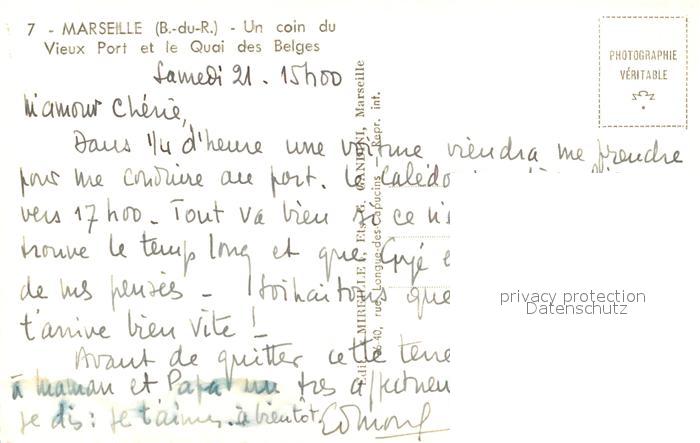 7 - MARSEILLE (B.-du-R.) - Un coin du
Vieux Port et le Quai des Belges
PHOTOGRAPHIE
VÉRITABLE
Samedi 21. 15h00
M'amour Chérie,
Dans 1/4 d'heure une voiture viendra me prendre
pour me conduire au port. Le Calédo
vers 17h00. Tout va bien si ce n'es
trouve le temps long et que
de mes pensées - Souhaitons que
t'arrive bien vite !
Avant de quitter cette terre
à maman et Papa un très affectueu
je dis : je t'aime. à bientôt. Edmond
MIREILLE, GANDINI, Marseille
36-40, rue Longue-des-Capucins — Repr. int.
privacy protection
Datenschutz